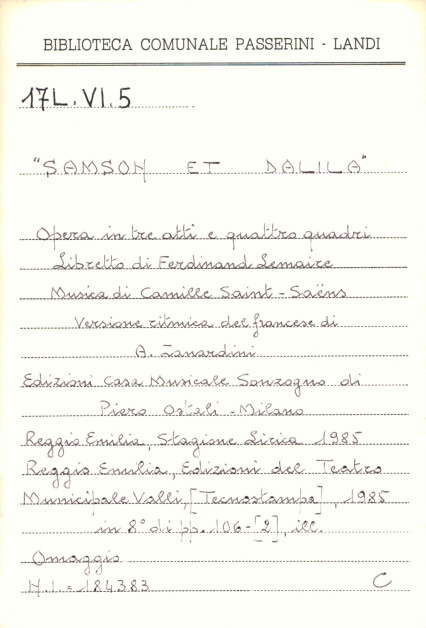 BIBLIOTECA COMUNALE PASSERINI - LANDI
17L.VI.5
"SAMSON ET DALILA"
Opera in tre atti e quattro quadri
Libretto di Ferdinand Lemaire
Musica di Camille Saint-Saëns
Versione ritmica del francese di
A. Zanardini
Edizioni Casa Musicale Sonzogno di
Piero Ostali - Milano
Reggio Emilia, Stagione Lirica 1985
Reggio Emilia, Edizioni del Teatro
Municipale Valli, [Tecnostampa], 1985
in 8° di pp. 106-[2], ill.
Omaggio
N.I.= 184383 C